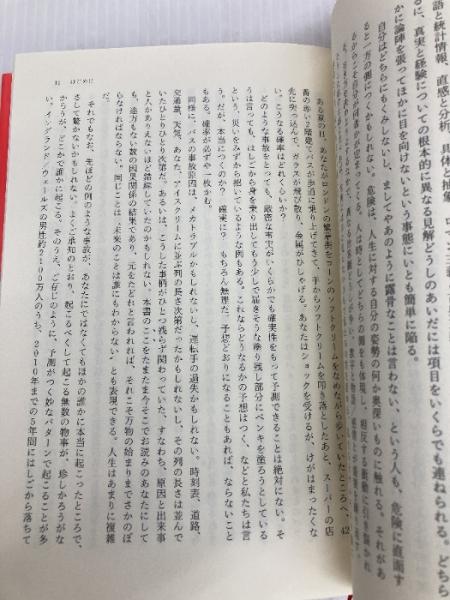 語と統計情報、直感と分析、具体と抽象
るに、真実と経験についての根本的に異なる見解どうしのあいだには項目をいくらでも連ねられる。どちら
かに論陣を張ってほかに目を向けないという事態にいとも簡単に陥る。
自分はどちらにもくみしないし、ましてやあのように露骨なことは言わない、という人も、危険に直面す
ると一方の側につくかもしれない。危険は、人生に対する自分の姿勢の何か奥深いものに触れる。それがあ
31 はじめに
ある夏の日、あなたがロンドンの繁華街をコーンのソフトクリームをなめながら歩いていたところへ、42
番の赤い2階建てバスが歩道に乗り上げてきて、手からソフトクリームを叩き落としたあと、スーパーの店
先に突っ込んで、ガラスが飛び散り、金属がひしゃげる。あなたはショックを受けるが、けがはまったくな
い。こうなる確率はどれくらいか?
どのような事故をとっても、厳密な事実がいくらかでも確実性をもって予測できることは絶対にない。そ
うは言っても、はしごから身を乗り出してもう少しで届きそうな塗り残し部分にペンキを塗ろうとしている
という、災いをみずから招いているような例もある。これならどうなるかの予想はつく、などと私たちは言
う。だが、本当につくのか? 確実に? もちろん無理だ。予想どおりになることもあれば、ならないこと
もある。確率が必ずや一枚かむ。
同様に、バスの事故原因は、メカトラブルかもしれないし、運転手の過失かもしれない。時刻表、道路、
交通量、天気、あなた、アイスクリームに並ぶ列の長さ次第だったかもしれないし、その列の長さは並んで
いたひとりひとり次第で、あるいは、こうした事柄がひとつ残らず関わっていた、すなわち、原因と出来事
と人がありえないほど錯綜していたのかもしれない。本書のここをたまたま今そこでお読みのあなたにして
も、途方もない数の因果関係の結果であり、元をたどれと言われれば、それこそ万物の始まりまでさかのぼ
らなければならない。同じことは、“未来のことは誰にもわからない”とも表現できる。人生はあまりに複雑
だ。
それでもなお、先ほどの例のような事故が、あなたにではなくてもほかの誰かに本当に起こったところで、
さして驚かないかもしれない。よくご承知のとおり、起こるべくして起こる無数の物事が、珍しかろうがな
かろうが、どこかで誰かに起こる。そのうえ、ご存じのように、予測がつく妙なパターンで起こることが多
い。イングランド/ウェールズの男性約2100万人のうち、2010年までの5年間にはしごから落ちて